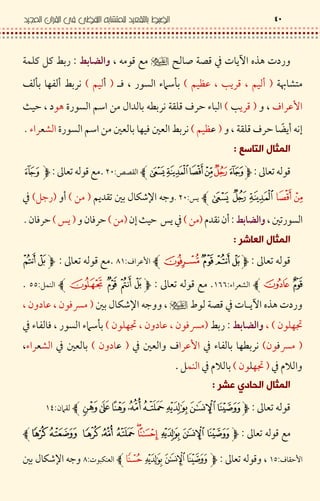 ٤٠ الضبط بالتقعيد للمتشابه اللفظي في القرآن المجيد
وردت هذه الآيات في قصة صالح ﷺ مع قومه ، والضابط : ربط كل كلمة
متشابهة ( أليم ، قريب ، عظيم ) بأسماء السور ، فـ ( أليم ) نربط ألفها بألف
الأعراف ، و ( قريب ) الباء حرف قلقلة نربطه بالدال من اسم السورة هود ، حيث
إنه أيضًا حرف قلقة ، و ( عظيم ) نربط العين فيها بالعين من اسم السورة الشعراء .
المثال التاسع :
قوله تعالى : ﴿ وَجَآءَ رَجُلٌ مِّنْ أَقْصَا ٱلْمَدِينَةِ يَسْعَىٰ ﴾ القصص:٢٠ .مع قوله تعالى : ﴿ وَجَآءَ
مِنْ أَقْصَا ٱلْمَدِينَةِ رَجُلٌ يَسْعَىٰ ﴾ يس:٢٠ .وجه الإشكال بين تقديم ( من ) أو (رجل) في
السورتين ، والضابط : أن نقدم (من ) في يس حيث إن (من ) حرفان و ( يس ) حرفان .
المثال العاشر :
قوله تعالى : ﴿ بَلْ أَنتُمْ قَوْمٌ مُّسْرِفُونَ ﴾ الأعراف:٨١ .مع قوله تعالى : ﴿ بَلْ أَنتُمْ
قَوْمٌ عَادُونَ ﴾ الشعراء:١٦٦. مع قوله تعالى : ﴿ بَلْ أَنتُمْ قَوْمٌ تَجْهَلُونَ ﴾ النمل:٥٥ .
وردت هذه الآيــات في قصة لوط ﷺ ، ووجه الإشكال بين ( مسرفون ، عادون ،
تجهلون ) ، والضابط : ربط (مسرفون ، عادون ، تجهلون ) بأسماء السور ، فالفاء في
( مسرفون) نربطها بالفاء في الأعراف والعين في ( عادون ) بالعين في الشعراء،
واللام في ( تجهلون ) باللام في النمل .
المثال الحادي عشر :
قوله تعالى : ﴿ وَوَصَّيْنَا ٱلْإِنسَـٰنَ بِوَٰلِدَيْهِ حَمَلَتْهُ أُمُّهُۥ وَهْنًا عَلَىٰ وَهْنٍ ﴾ لقمان:١٤
مع قوله تعالى : ﴿ وَوَصَّيْنَا ٱلْإِنسَـٰنَ بِوَٰلِدَيْهِ إِحْسَـٰنًا حَمَلَتْهُ أُمُّهُۥ كُرْهًا وَوَضَعَتْهُ كُرْهًا ﴾
الأحقاف:١٥ ، وقوله تعالى : ﴿ وَوَصَّيْنَا ٱلْإِنسَـٰنَ بِوَٰلِدَيْهِ حُسْنًا ﴾ العنكبوت:٨ وجه الإشكال بين